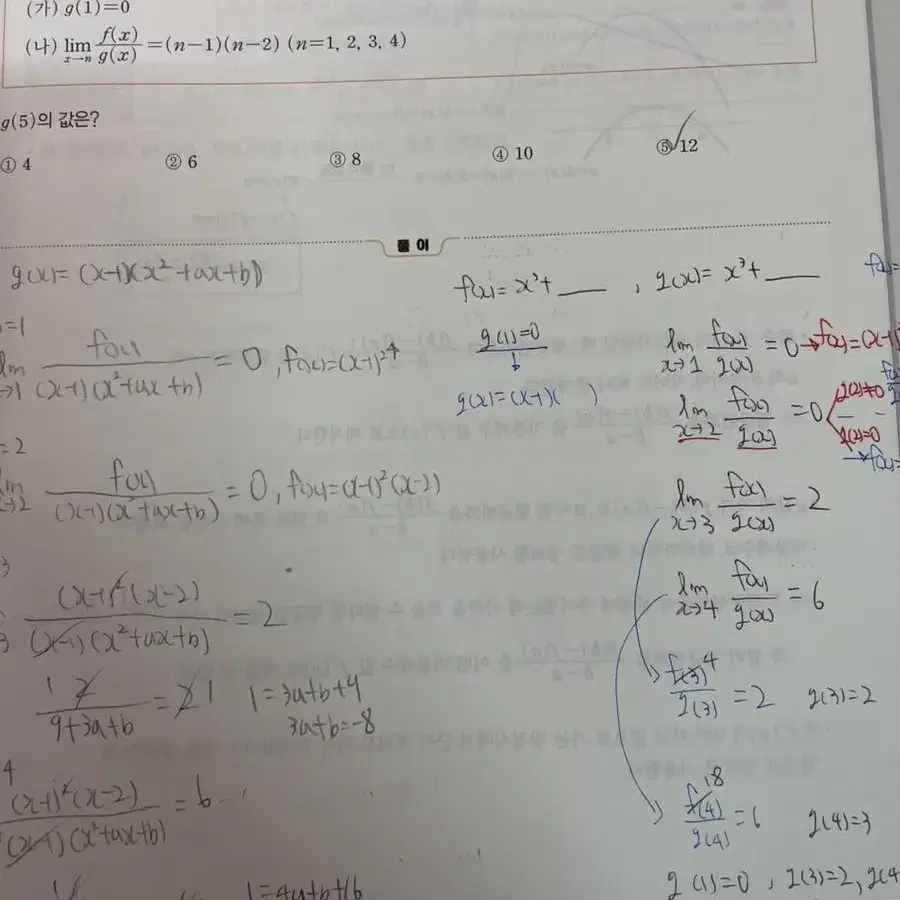 (가) g(1)=0
(나) lim x→n f(x)/g(x) =(n-1)(n-2) (n=1, 2, 3, 4)
g(5)의 값은?
① 4 ② 6 ③ 8 ④ 10 ⑤ 12
풀 이
g(x)= (x-1)(x²+ax+b)
=1
lim →1 f(x)/(x-1)(x²+ax+b) = 0, f(x)=(x-1)²
= 2
lim →2 f(x)/(x-1)(x²+ax+b) = 0, f(x)=(x-1)²(x-2)
3
(x-1)²(x-2)/(x-1)(x²+ax+b) = 2
1 2/9+3a+b = 2 1 1=3a+b+9
3a+b=-8
4
(x-1)²(x-2)/(x-1)(x²+ax+b) = 6
1=4a+b+16
f(x)= x³+ ___ , g(x)= x³+ ___
f(x)=
g(1)=0
g(x)=(x-1)( )
lim x→1 f(x)/g(x) = 0 → f(x)=(x-1)
lim x→2 f(x)/g(x) = 0
g(2)≠0
g(2)=0
→ f(x)=
lim x→3 f(x)/g(x) = 2
lim x→4 f(x)/g(x) = 6
f(3) 4/g(3) = 2 g(3)=2
f(4) 18/g(4) = 6 g(4)=3
g(1)=0, g(3)=2, g(4